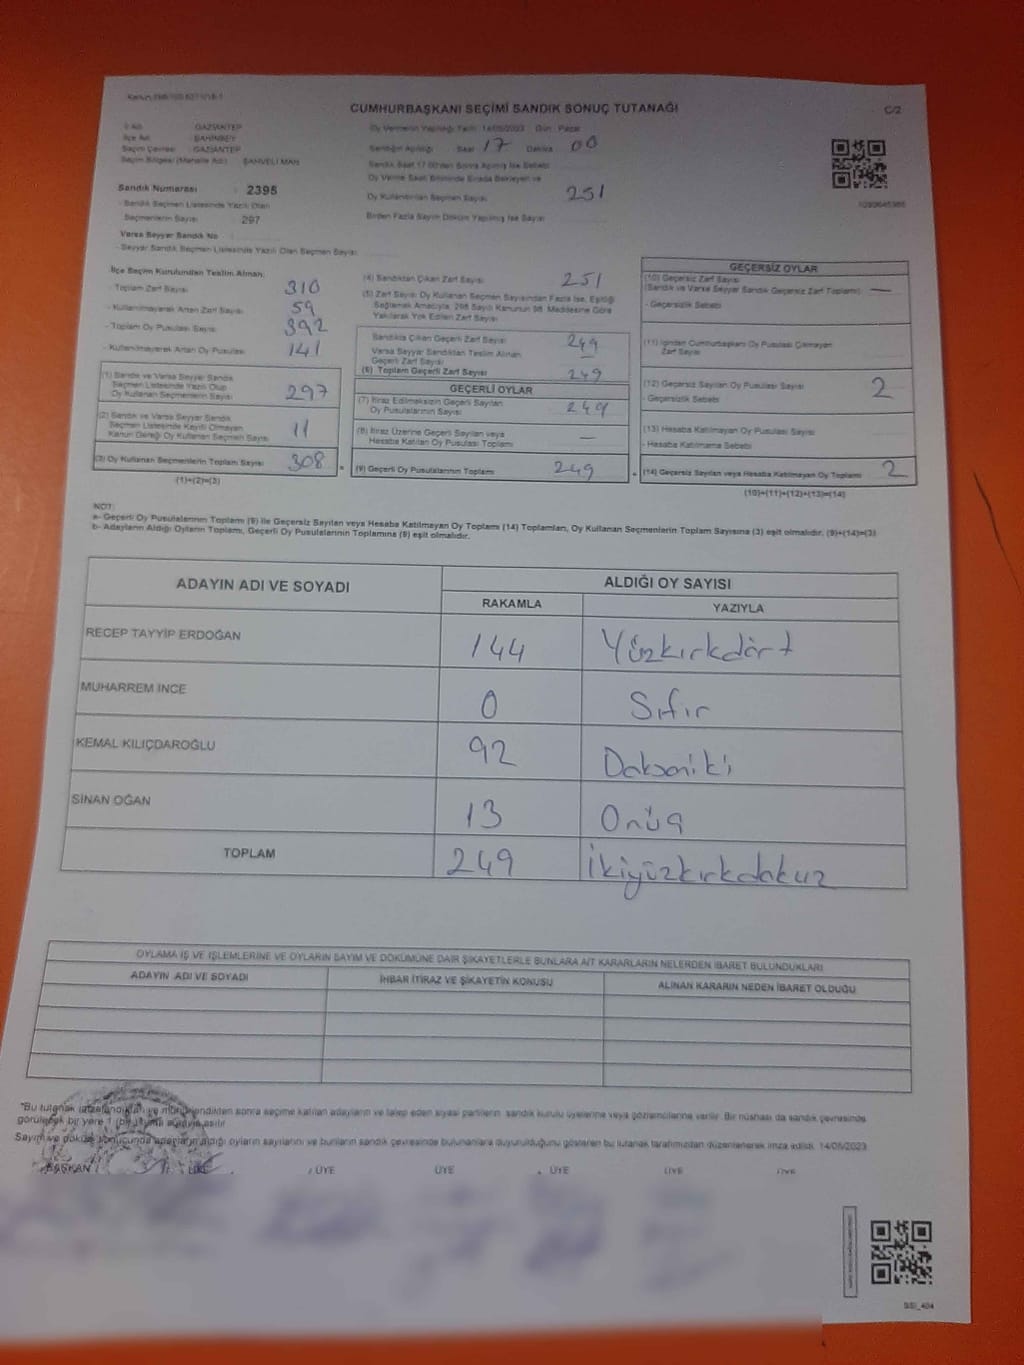 CUMHURBAŞKANI SEÇİMİ SANDIK SONUÇ TUTANAĞI
C/2
İl Adı : GAZİANTEP
İlçe Adı : ŞAHİNBEY
Seçim Çevresi : GAZİANTEP
Seçim Bölgesi (Mahalle Adı) : ŞAHVELİ MAH
Oy Vermenin Yapıldığı Tarih: 14/05/2023 Gün: Pazar
Sandığın Açıldığı Saat 17 Dakika 00
Sandık Saat 17:00'den Sonra Açılmış İse Sebebi
Oy Verme Saati Bitiminde Sırada Bekleyen ve
Oy Kullandırılan Seçmen Sayısı 251
Birden Fazla Sayım Döküm Yapılmış İse Sayısı
Sandık Numarası : 2395
- Sandık Seçmen Listesinde Yazılı Olan
Seçmenlerin Sayısı : 297
Varsa Seyyar Sandık No
- Seyyar Sandık Seçmen Listesinde Yazılı Olan Seçmen Sayısı
İlçe Seçim Kurulundan Teslim Alınan:
- Toplam Zarf Sayısı 310
- Kullanılmayarak Artan Zarf Sayısı 59
- Toplam Oy Pusulası Sayısı 392
- Kullanılmayarak Artan Oy Pusulası 141
(1) Sandık ve Varsa Seyyar Sandık
Seçmen Listesinde Yazılı Olup
Oy Kullanan Seçmenlerin Sayısı 297
(2) Sandık ve Varsa Seyyar Sandık
Seçmen Listesinde Kayıtlı Olmayan
Kanun Gereği Oy Kullanan Seçmen Sayısı 11
(3) Oy Kullanan Seçmenlerin Toplam Sayısı 308
(1)+(2)=(3)
(4) Sandıktan Çıkan Zarf Sayısı 251
(5) Zarf Sayısı Oy Kullanan Seçmen Sayısından Fazla İse, Eşitliği
Sağlamak Amacıyla, 298 Sayılı Kanunun 98. Maddesine Göre
Yakılarak Yok Edilen Zarf Sayısı
Sandıkta Çıkan Geçerli Zarf Sayısı 249
Varsa Seyyar Sandıktan Teslim Alınan
Geçerli Zarf Sayısı —
(6) Toplam Geçerli Zarf Sayısı 249
GEÇERLİ OYLAR
(7) İtiraz Edilmeksizin Geçerli Sayılan
Oy Pusulalarının Sayısı 249
(8) İtiraz Üzerine Geçerli Sayılan veya
Hesaba Katılan Oy Pusulası Toplamı —
(9) Geçerli Oy Pusulalarının Toplamı 249
GEÇERSİZ OYLAR
(10) Geçersiz Zarf Sayısı
(Sandık ve Varsa Seyyar Sandık Geçersiz Zarf Toplamı) —
- Geçersizlik Sebebi
(11) İçinden Cumhurbaşkanı Oy Pusulası Çıkmayan
Zarf Sayısı
(12) Geçersiz Sayılan Oy Pusulası Sayısı 2
- Geçersizlik Sebebi
(13) Hesaba Katılmayan Oy Pusulası Sayısı
- Hesaba Katılmama Sebebi
(14) Geçersiz Sayılan veya Hesaba Katılmayan Oy Toplamı 2
(10)+(11)+(12)+(13)=(14)
NOT:
a- Geçerli Oy Pusulalarının Toplamı (9) ile Geçersiz Sayılan veya Hesaba Katılmayan Oy Toplamı (14) Toplamları, Oy Kullanan Seçmenlerin Toplam Sayısına (3) eşit olmalıdır. (9)+(14)=(3)
b- Adayların Aldığı Oyların Toplamı, Geçerli Oy Pusulalarının Toplamına (9) eşit olmalıdır.
ADAYIN ADI VE SOYADI
ALDIĞI OY SAYISI
RAKAMLA YAZIYLA
RECEP TAYYİP ERDOĞAN 144 Yüzkırkdört
MUHARREM İNCE 0 Sıfır
KEMAL KILIÇDAROĞLU 92 Doksaniki
SİNAN OĞAN 13 Onüç
TOPLAM 249 İkiyüzkırkdokuz
OYLAMA İŞ VE İŞLEMLERİNE VE OYLARIN SAYIM VE DÖKÜMÜNE DAİR ŞİKAYETLERLE BUNLARA AİT KARARLARIN NELERDEN İBARET BULUNDUKLARI
ADAYIN ADI VE SOYADI İHBAR İTİRAZ VE ŞİKAYETİN KONUSU ALINAN KARARIN NEDEN İBARET OLDUĞU
"Bu tutanak imzalandıktan ve mühürlendikten sonra seçime katılan adayların ve talep eden siyasi partilerin sandık kurulu üyelerine veya gözlemcilerine verilir. Bir nüshası da sandık çevresinde
görülecek bir yere 1 (bir) hafta süreyle asılır.
Sayım ve döküm sonucunda adayların aldığı oyların sayılarını ve bunların sandık çevresinde bulunanlara duyurulduğunu gösteren bu tutanak tarafımızdan düzenlenerek imza edildi. 14/05/2023
BAŞKAN ÜYE ÜYE ÜYE ÜYE ÜYE ÜYE